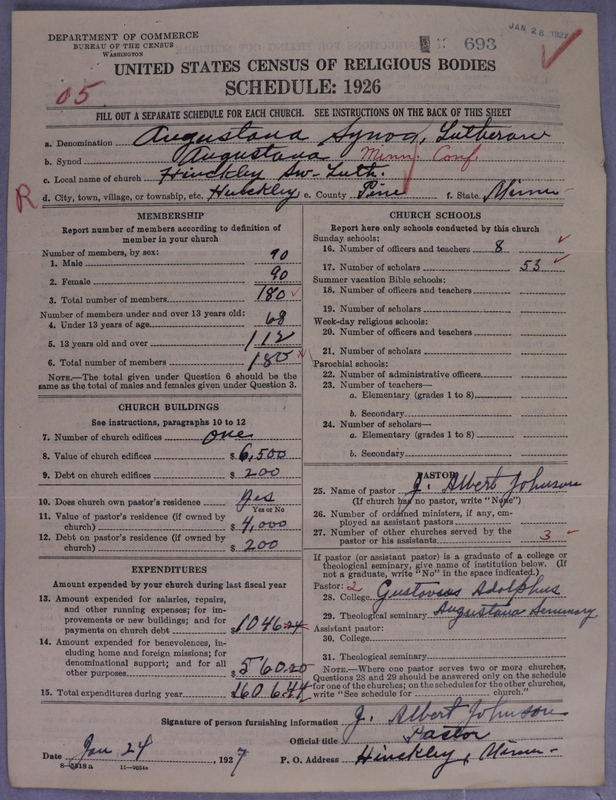 DEPARTMENT OF COMMERCE
BUREAU OF THE CENSUS
WASHINGTON
693
JAN 26 1927
UNITED STATES CENSUS OF RELIGIOUS BODIES
SCHEDULE: 1926
05
FILL OUT A SEPARATE SCHEDULE FOR EACH CHURCH. SEE INSTRUCTIONS ON THE BACK OF THIS SHEET
a. Denomination Augustana Synod, Lutheran
b. Synod Augustana Minn. Conf.
c. Local name of church Hinckley Sw. Luth.
R d. City, town, village, or township, etc. Hinckley e. County Pine f. State Minn
MEMBERSHIP
Report number of members according to definition of member in your church
Number of members, by sex:
1. Male 90
2. Female 90
3. Total number of members 180
Number of members under and over 13 years old:
4. Under 13 years of age 68
5. 13 years old and over 112
6. Total number of members 180
NOTE.—The total given under Question 6 should be the same as the total of males and females given under Question 3.
CHURCH BUILDINGS
See instructions, paragraphs 10 to 12
7. Number of church edifices one
8. Value of church edifices $ 6,500
9. Debt on church edifices $ 200
10. Does church own pastor's residence? Yes
Yes or No
11. Value of pastor's residence (if owned by church) $ 4,000
12. Debt on pastor's residence (if owned by church) $ 200
EXPENDITURES
Amount expended by your church during last fiscal year
13. Amount expended for salaries, repairs, and other running expenses; for improvements or new buildings; and for payments on church debt $1046.24
14. Amount expended for benevolences, including home and foreign missions; for denominational support; and for all other purposes $560.20
15. Total expenditures during year $1606.44
CHURCH SCHOOLS
Report here only schools conducted by this church
Sunday schools:
16. Number of officers and teachers 8
17. Number of scholars 53
Summer vacation Bible schools:
18. Number of officers and teachers
19. Number of scholars
Week-day religious schools:
20. Number of officers and teachers
21. Number of scholars
Parochial schools:
22. Number of administrative officers
23. Number of teachers—
a. Elementary (grades 1 to 8)
b. Secondary
24. Number of scholars—
a. Elementary (grades 1 to 8)
b. Secondary
PASTOR
25. Name of pastor J. Albert Johnson
(If church has no pastor, write "None")
26. Number of ordained ministers, if any, employed as assistant pastors
27. Number of other churches served by the pastor or his assistants 3
If pastor (or assistant pastor) is a graduate of a college or theological seminary, give name of institution below. (If not a graduate, write "No" in the space indicated.)
Pastor: 2
28. College Gustavus Adolphus
29. Theological seminary Augustana Seminary
Assistant pastor:
30. College
31. Theological seminary
NOTE.—Where one pastor serves two or more churches, Questions 28 and 29 should be answered only on the schedule for one of the churches; on the schedules for the other churches, write "See schedule for church."
Signature of person furnishing information J. Albert Johnson
Official title Pastor
Date Jan 24 1927 P. O. Address Hinckley, Minn
8—5518a 11—9224